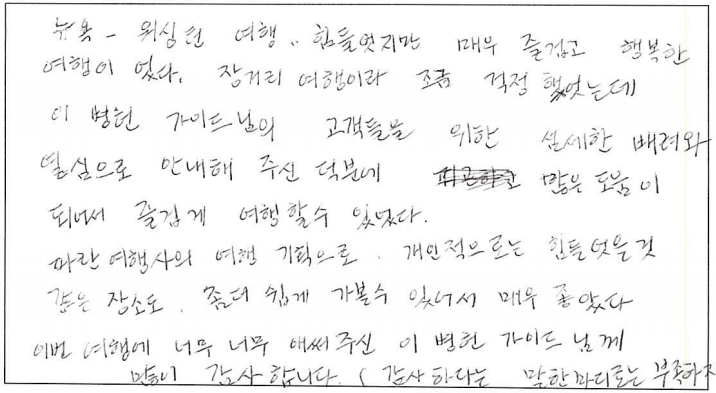 뉴욕 - 워싱턴 여행.. 힘들었지만 매우 즐겁고 행복한
여행이 었다. 장거리 여행이라 조금 걱정 했었는데
이 병헌 가이드님의 고객들을 위한 섬세한 배려와
열심으로 안내해 주신 덕분에 많은 도움이
되어서 즐겁게 여행할수 있었다.
파란여행사의 여행 기획으로. 개인적으로는 힘들었을것
같은 장소도. 좀더 쉽게 가볼수 있어서 매우 좋았다
이번 여행에 너무 너무 애써주신 이 병헌 가이드 님께
많이 감사 합니다. (감사하다는 말한마디로는 부족하지